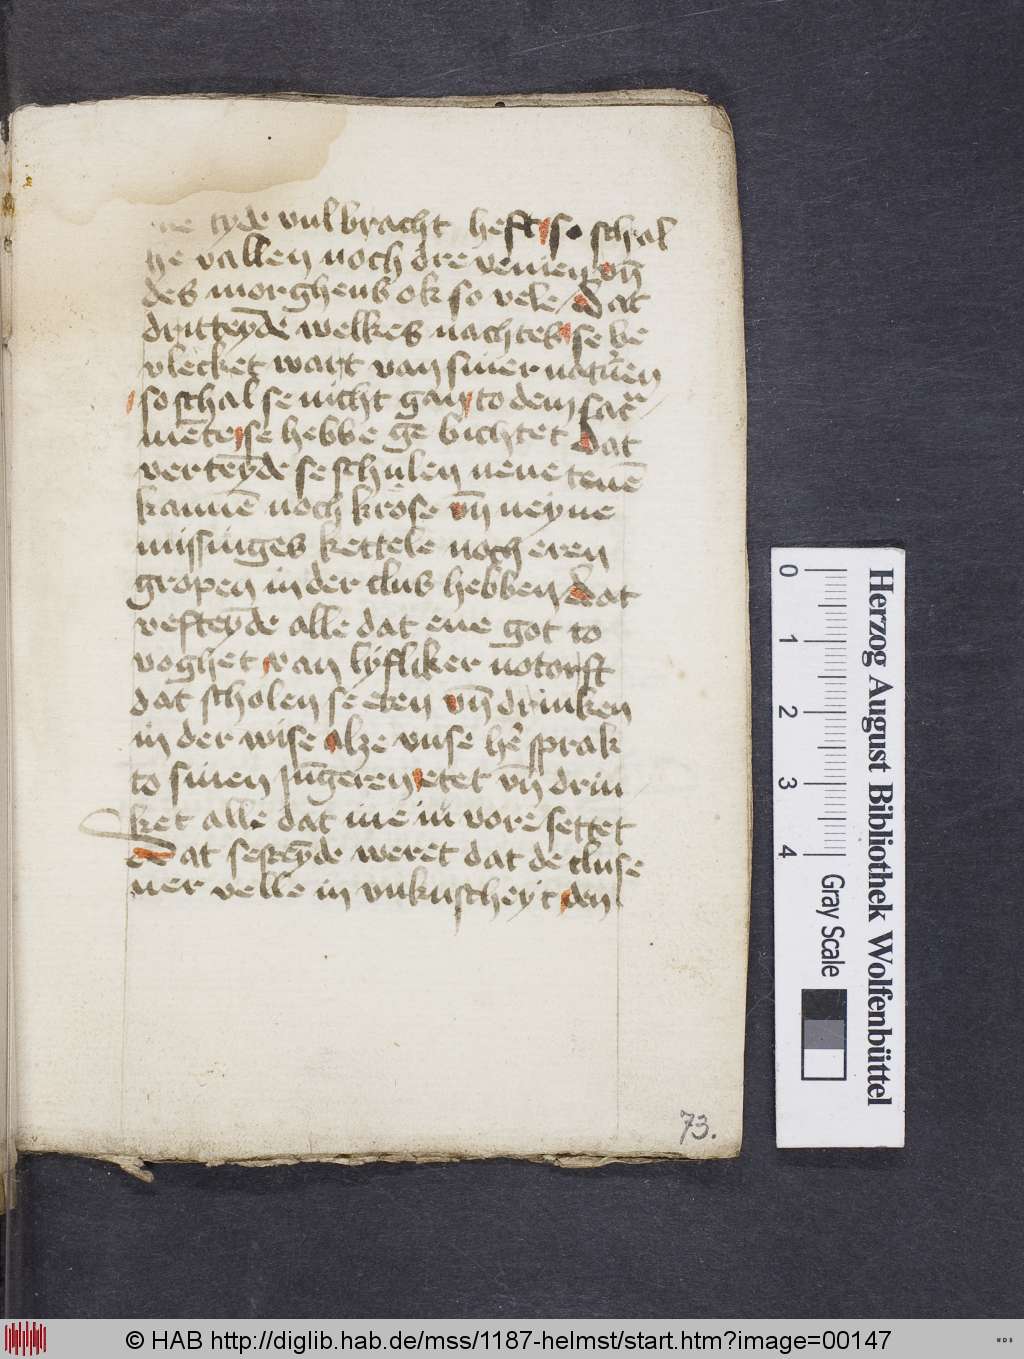 ne tyde vulbracht heft so schal
he vallen noch dre venien vn̄
des morghens ok so vele Dat
dritteyde welkes nachtes se be
vlecket wart van siner naturen
so schal se nicht gan to dem sacr̄
mēte se hebbe ge bichtet dat
verteyde se schulen nene tenē
kannē noch krose vn̄ neyne
missinges kettele noch eren
gropen in der clus hebben dat
vefteyde alle dat ene got to
voghet van lyfliker notorft
dat scholen se eten vn̄ drinken
in der wise alze vnse he᷑ sprak
to sinen Jūgeren etet vn̄ drin
ket alle dat me iu vore settet
Dat sesteyde weret dat de cluse
ner velle in vnkuscheyt den
73.
Herzog August Bibliothek Wolfenbüttel
0 1 2 3 4 Gray Scale
© HAB http://diglib.hab.de/mss/1187-helmst/start.htm?image=00147
WDB